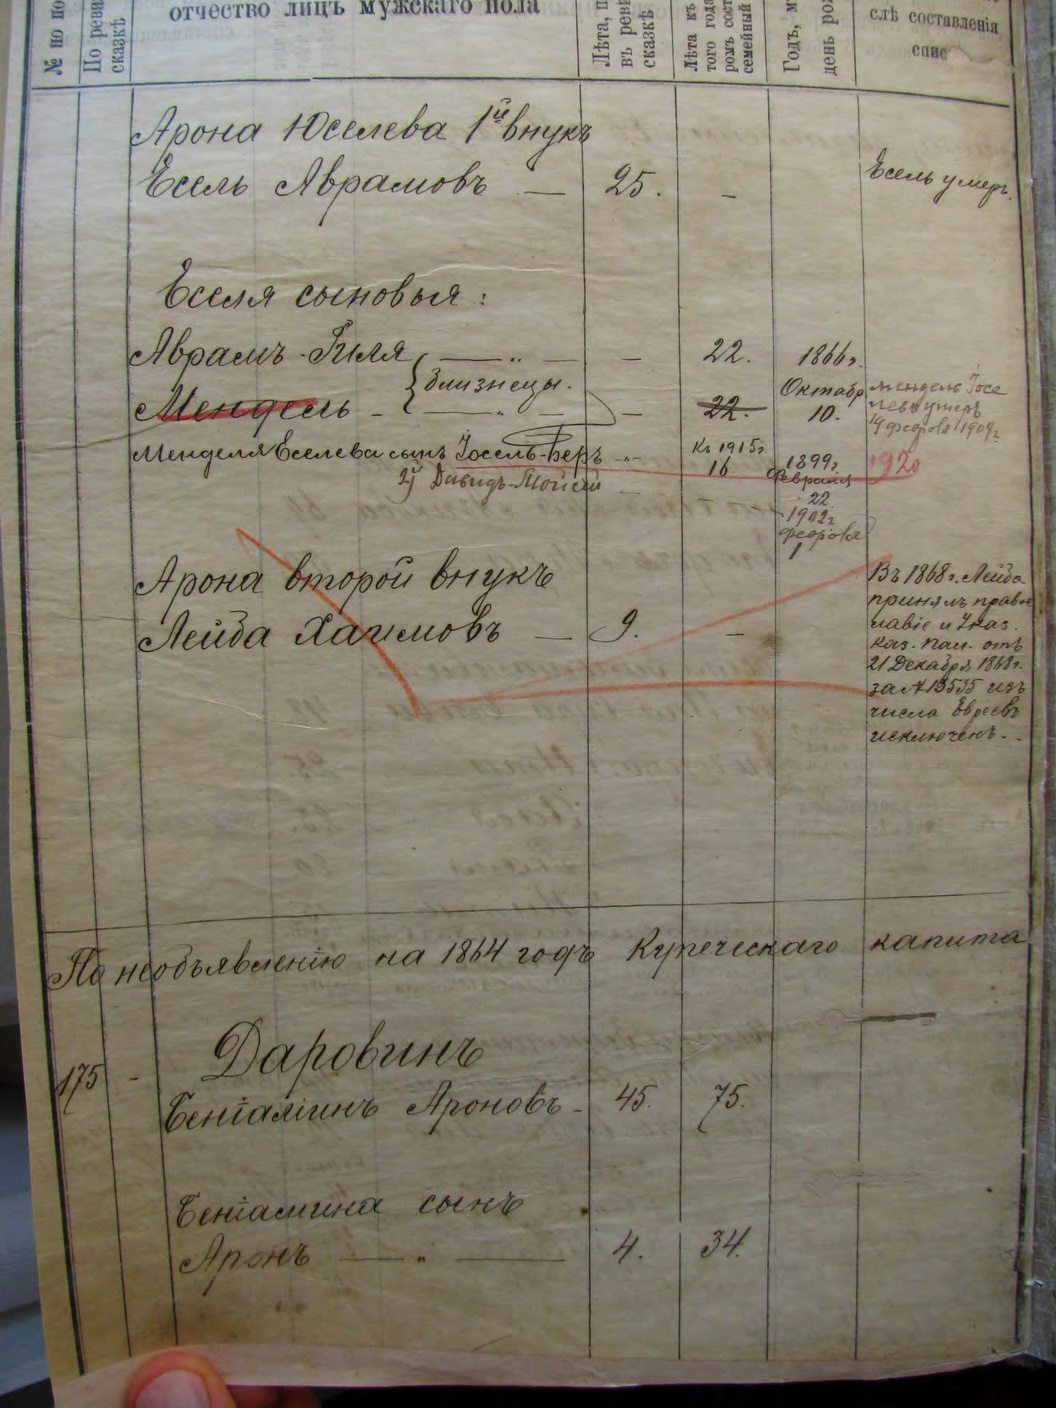 № по по
По реви
сказкѣ
отчество лицъ мужскаго пола
Лѣта, п
въ реви
сказкѣ
Лѣта къ
того года
ромъ сост
семейный
Годъ, м
день рож
слѣ составленія
спис
Арона Юселева 1й внукъ
Есель Аврамовъ — 25. –
Есель умеръ.
Еселя сыновья:
Аврамъ-Гиля — „ — – 22. 1866г.
близнецы.
Октябр
Мендель - — „ — – 22. 10.
Мендель Іосе
левъ умеръ
19 февраля 1904г.
Менделя Еселева сынъ Іосель-Беръ -„- Къ 1915г. 16 1899г. февраля 22 1920
2й Давидъ-Мойсей
1902г
февраля
1
Арона второй внукъ
Лейба Хаимовъ — 9. –
Въ 1868г. Лейба
принялъ право
славіе и Указ.
каз. пал. отъ
21 Декабря 1868г.
за № 13535 изъ
числа Евреевъ
исключенъ.
По необъявленію на 1864 годъ Купеческаго капита
Даровинъ
175 - Беніаминъ Ароновъ - 45. 75.
Беніамина сынъ
Аронъ — „ — 4. 34.